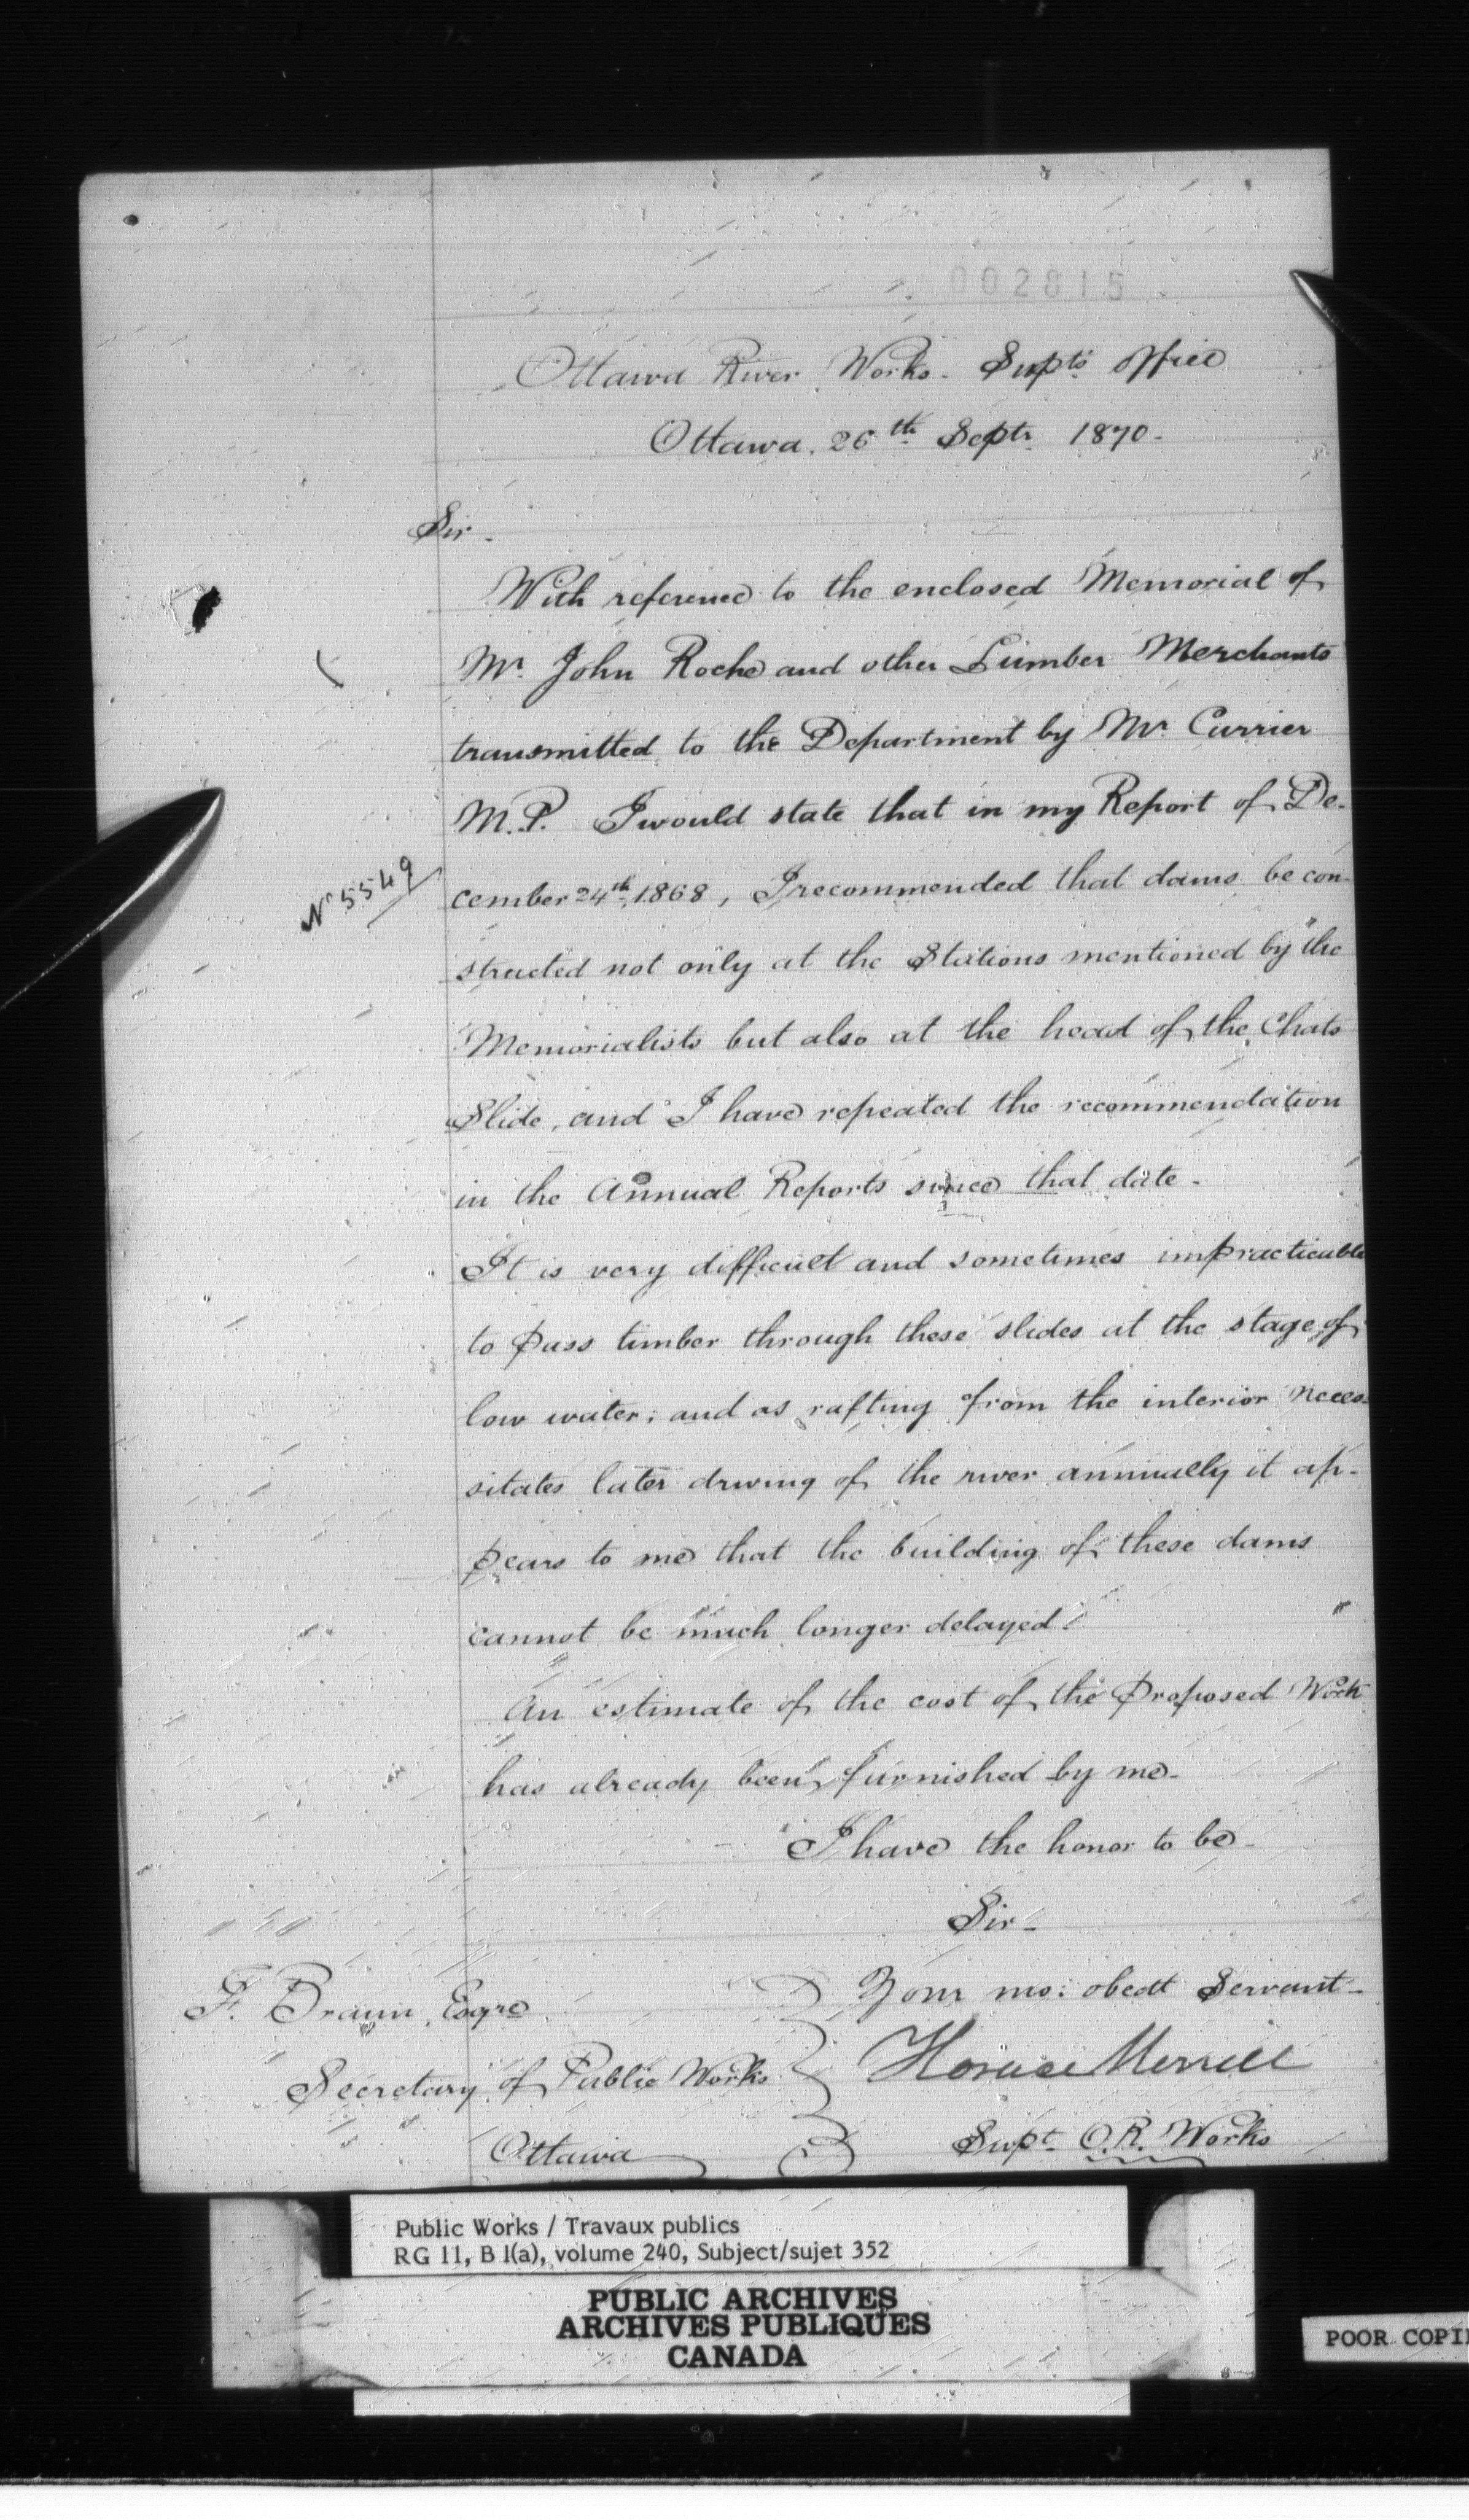 002815
Ottawa River Works - Supts Office
Ottawa. 26th Septr 1870 -
Sir -
With reference to the enclosed Memorial of
Mr. John Roche and other Lumber Merchants
transmitted to the Department by Mr. Currier
M.P. I would state that in my Report of De-
No 5549
cember 24th 1868, I recommended that dams be con-
structed not only at the Stations mentioned by the
Memorialists but also at the head of the Chats
Slide, and I have repeated the recommendation
in the Annual Reports since that date -
It is very difficult and sometimes impracticable
to pass timber through these slides at the stage of
low water; and as rafting from the interior neces-
sitates later driving of the river annually it ap-
pears to me that the building of these dams
cannot be much longer delayed.
An estimate of the cost of the Proposed Work
has already been furnished by me -
I have the honor to be -
Sir -
Your mo: obedt Servant -
Horace Merrill
Supt O.R. Works
F. Braun, Esqre
Secretary of Public Works
Ottawa
Public Works / Travaux publics
RG 11, B 1(a), volume 240, Subject/sujet 352
PUBLIC ARCHIVES
ARCHIVES PUBLIQUES
CANADA
POOR COPI